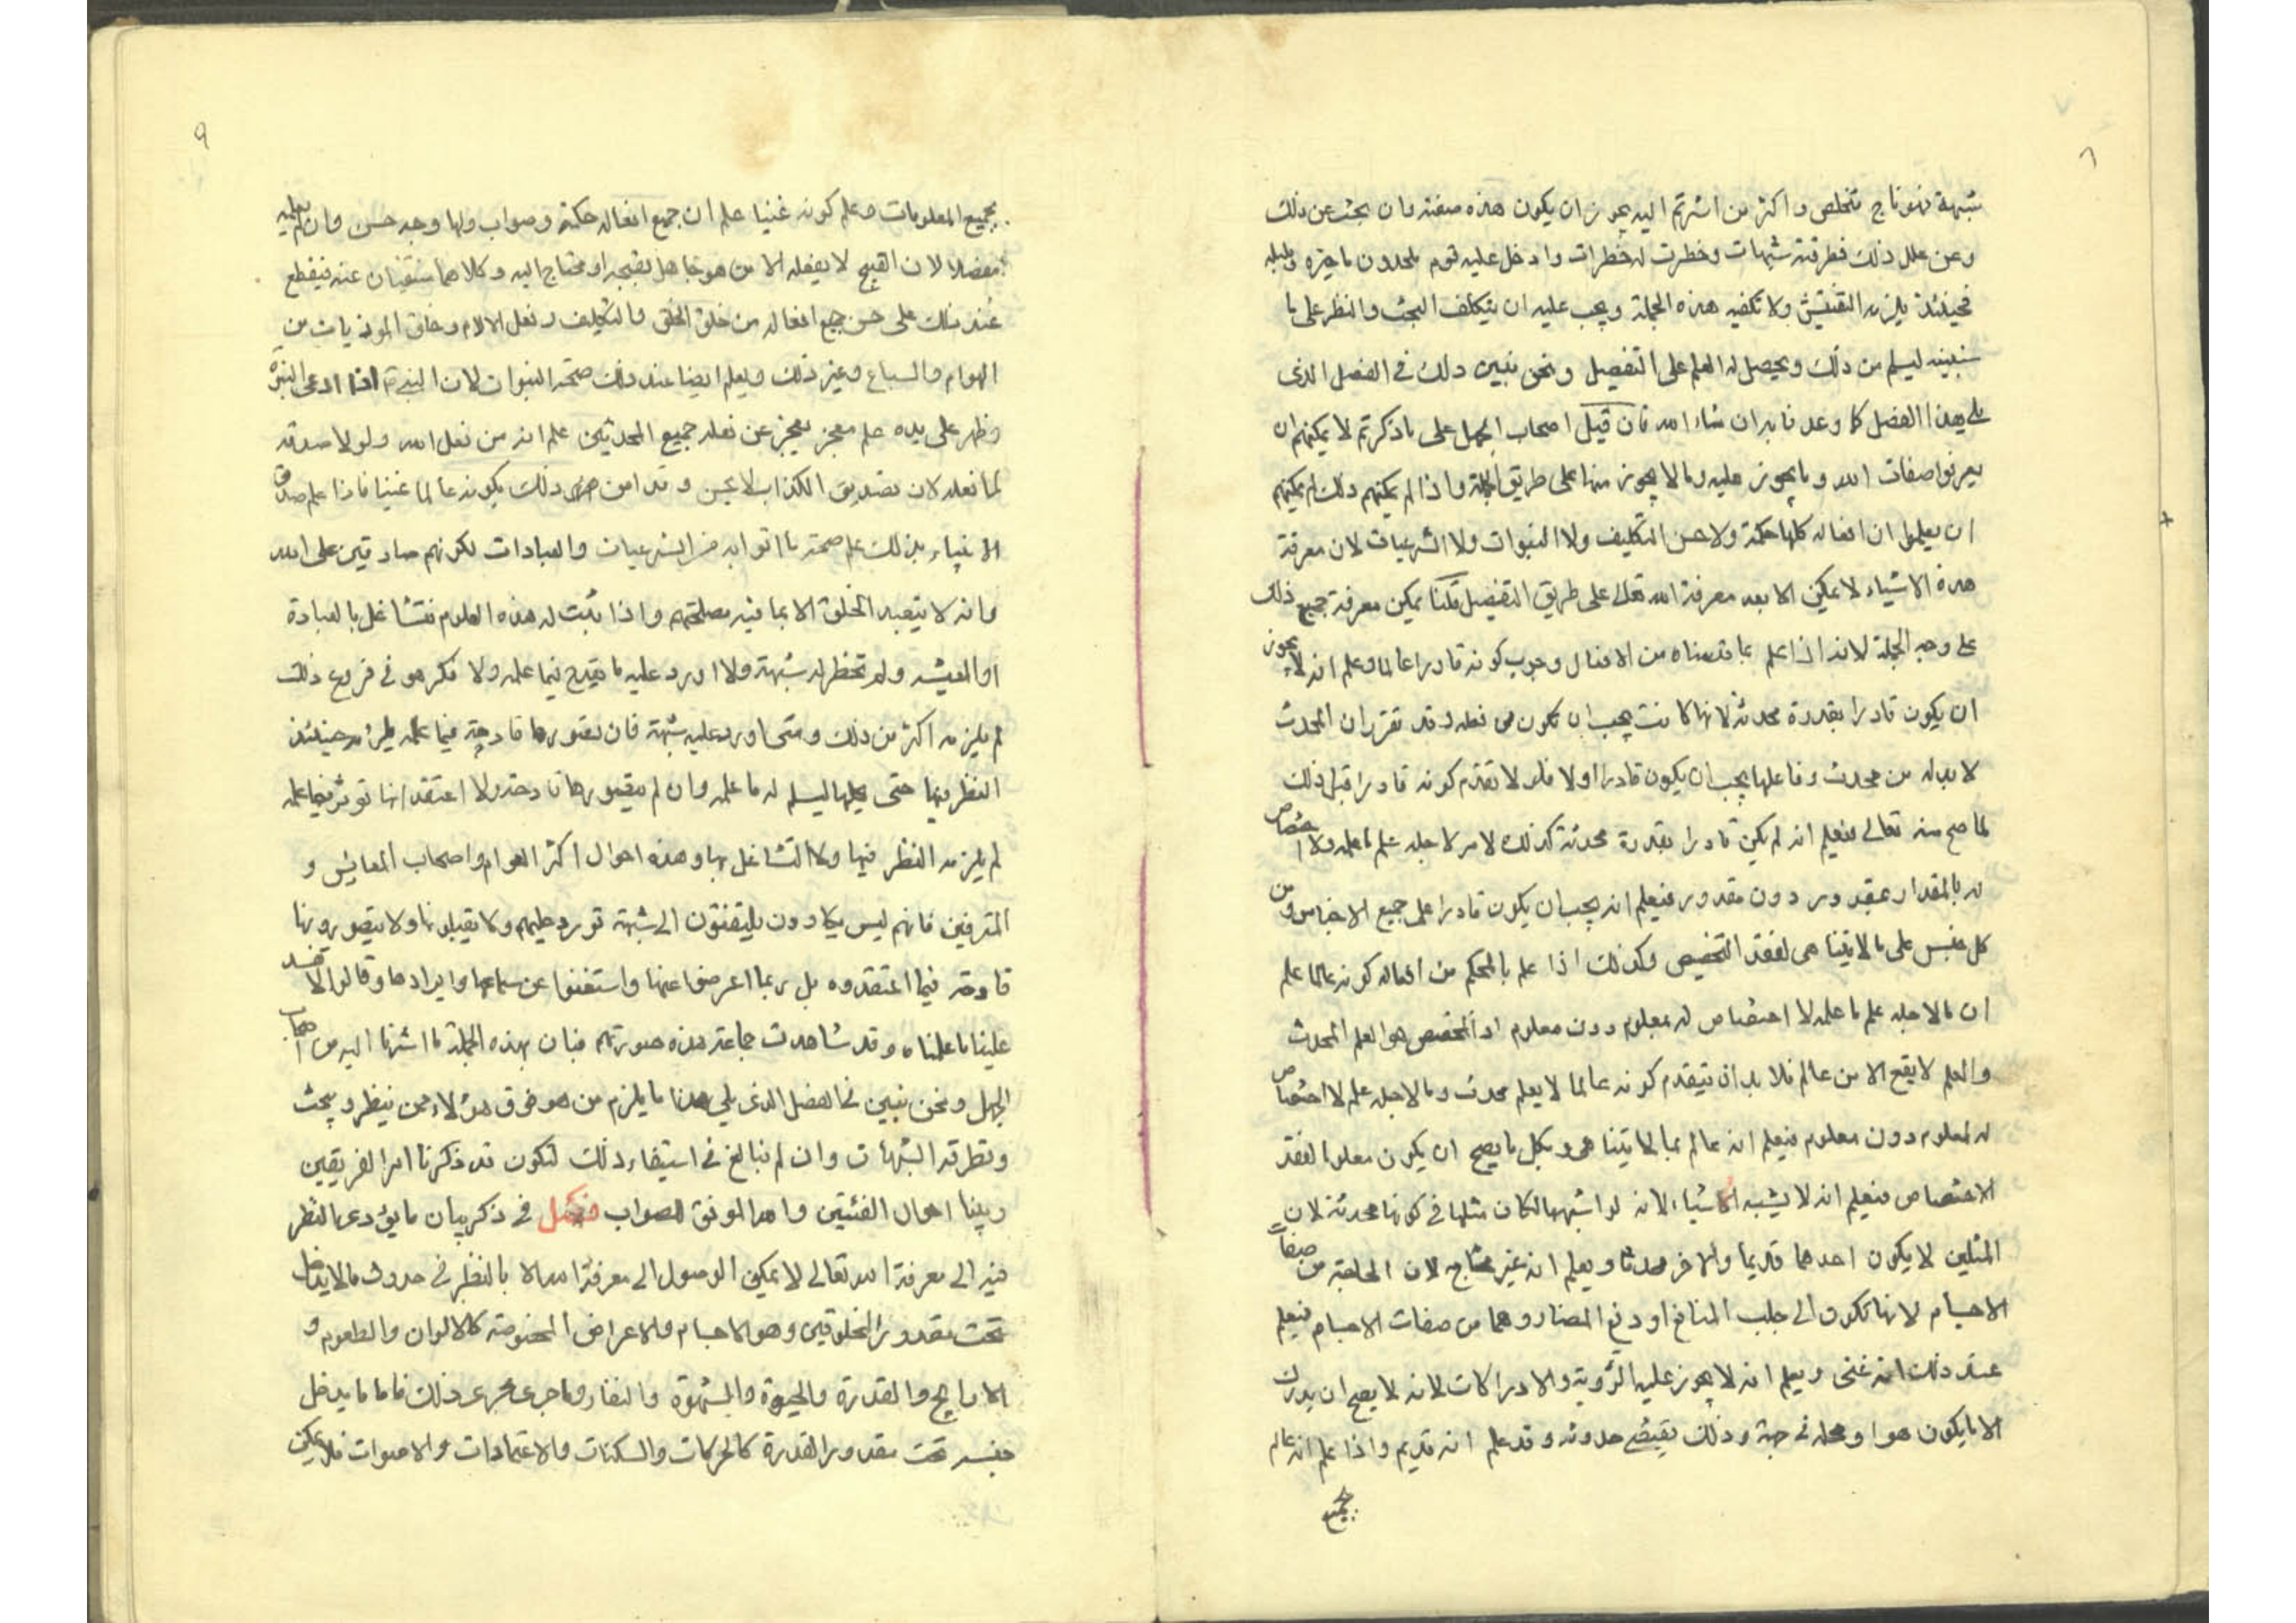 ٨
شبهة فهو ناج متخلص واكثر من اشرتم اليه يجوز ان يكون هذه صفته وان بحث عن ذلك
وعن علل ذلك فطرقته شبهات وخطرت له خطرات وادخل عليه قوم ملحدون ما حيره
فحينئذ يلزمه التفتيش ولا تكفيه هذه الجملة ويجب عليه ان يتكلف البحث والنظر على ما
سنبينه ليسلم من ذلك ويحصل له العلم على التفصيل ونحن نبين ذلك في الفصل الذى
يلي هذا الفصل كما وعدنا به ان شاء الله فان قيل اصحاب الجمل على ما ذكرتم لا يمكنهم ان
يعرفوا صفات الله وما يجوز عليه وما لا يجوز منها على طريق الجملة واذا لم يمكنهم ذلك لم يمكنهم
ان يعلموا ان افعاله كلها حكمة ولا حسن التكليف ولا النبوات ولا الشرعيات لان معرفة
هذه الاشياء لا يمكن الا بعد معرفة الله تعالى على طريق التفصيل قلنا يمكن معرفة جميع ذلك
على وجه الجملة لانه اذا علم بما قدمناه من الافعال وجوب كونه قادرا عالما وعلم انه لا يجوز
ان يكون قادرا بقدرة محدثة لانها كانت يجب ان تكون من فعله وقد تقرر ان المحدث
لا بد له من محدث وفاعلها يجب ان يكون قادرا اولا فلو لا تقدم كونه قادرا قبل ذلك
لما صح منه تعالى فيعلم انه لم يكن قادرا بقدرة محدثة كذلك لامر لاجله علم ما علمه ولا اختصاص
له بالمقدار عقدور دون مقدور فيعلم انه يجب ان يكون قادرا على جميع الاجناس ومن
كل جنس على ما لا يتناهى لفقد التخصيص وكذلك اذا علم بالمحكم من افعاله كونه عالما علم
ان ما لاجله علم ما علمه لا اختصاص له بمعلوم دون معلوم اذ المخصص هو العلم المحدث
والعلم لا يقع الا من عالم فلا بد ان يتقدم كونه عالما لا بعلم محدث وما لاجله علم لا اختصاص
له لمعلوم دون معلوم فيعلم انه عالم بما لا يتناهى وبكل ما يصح ان يكون معلوما لفقد
الاختصاص فيعلم انه لا يشبه الاشياء لانه لو اشبهها لكان مثلها في كونها محدثة لان
المثلين لا يكون احدهما قديما والاخر محدثا ويعلم انه غير محتاج لان الحاجة من صفات
الاجسام لانها تكون الى جلب المنافع او دفع المضار وهما من صفات الاجسام فيعلم
عند ذلك انه غنى ويعلم انه لا يجوز عليه الرؤية والادراكات لانه لا يصح ان يدرك
الا ما يكون هو او محله في جهة وذلك يقتضي حدوثه وقد علم انه قديم واذا علم انه عالم
بجميع
٩
بجميع المعلومات وعلم كونه غنيا علم ان جميع افعاله حكمة وصواب ولها وجه حسن وان لم يعلمه
مفصلا لان القبيح لا يفعله الا من هو جاهل بقبحه او محتاج اليه وكلاهما منتفيان عنه فيقطع
عند ذلك على حسن جميع افعاله من خلق الخلق والتكليف وفعل الالام وخلق الموذيات من
الهوام والسباع وغير ذلك ويعلم ايضا عند ذلك صحة النبوات لان النبي اذا ادعى النبوة
وظهر على يده علم معجز يعجز عن فعله جميع المحدثين علم انه من فعل الله ولولا صدقه
لما فعله لان تصديق الكذاب لا يحسن وقد امن ذلك بكونه عالما غنيا فاذا علم صدق
الانبياء بذلك علم صحة ما اتوا به من الشرعيات والعبادات لكونهم صادقين على الله
وانه لا يتعبد الخلق الا بما فيه مصلحتهم واذا ثبت له هذه العلوم فتشاغل بالعبادة
او المعيشه ولم تخطر له شبهة ولا اورد عليه ما يقدح فيما علمه ولا فكر هو في فروع ذلك
لم يلزمه اكثر من ذلك ومتى اورد عليه شبهة فان تصورها قادحة فيما علمه يلزمه حينئذ
النظر فيها حتى يحلها ليسلم له ما علمه وان لم يتصورها قادحة ولا اعتقد انها توثر فيما علمه
لم يلزمه النظر فيها ولا التشاغل بها وهذه احوال اكثر العوام واصحاب المعايش و
المترفين فانهم ليس يكادون يلتفتون الى شبهة تورد عليهم ولا يقبلونها ولا يتصورونها
قادحة فيما اعتقدوه بل ربما اعرضوا عنها واستغنوا عن سماعها وايرادها وقالوا لا تفسد
علينا ما علمناه وقد شاهدت جماعة هذه صورتهم فبان بهذه الجملة ما اشرنا اليه من اصحاب
الجمل ونحن نبين في الفصل الذى يلي هذا ما يلزم من هو فوق هؤلاء ممن ينظر ويبحث
وتطرقه الشبهات وان لم نبالغ في استيفاء ذلك لنكون قد ذكرنا امر الفريقين
وبينا احوال الفئتين والله الموفق للصواب فصل في ذكر بيان ما يؤدى النظر
فيه الى معرفة الله تعالى لا يمكن الوصول الى معرفة الله الا بالنظر في حدوث ما لا يدخل
تحت مقدور المخلوقين وهو الاجسام والاعراض المخصوصة كالالوان والطعوم و
الاراييح والقدرة والحيوة والشهوة والنفار وما جرى مجرى ذلك فاما ما يدخل
جنسه تحت مقدور القدرة كالحركات والسكنات والاعتمادات والاصوات فلا يمكن